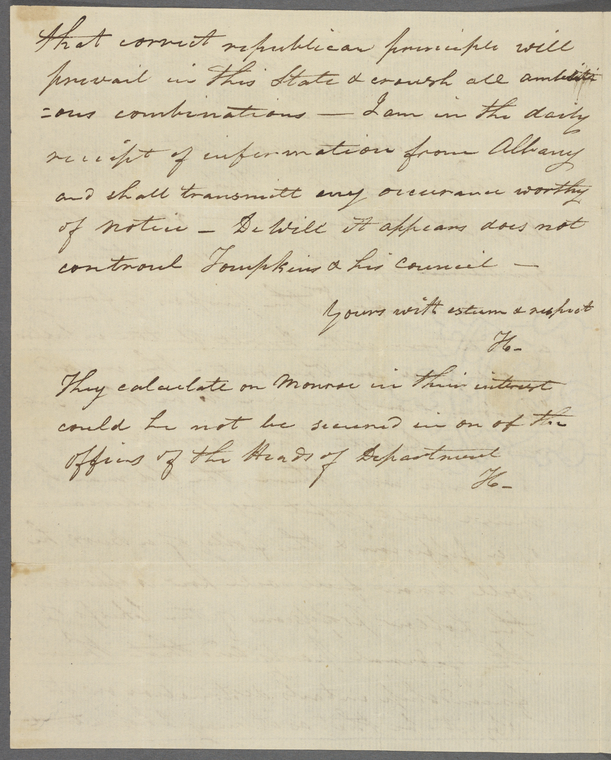 that correct republican principle will
prevail in this State & crowsh all ambiti
=ous combinations — I am in the daily
receipt of information from Albany
and shall transmitt any occurance worthy
of notice — DeWitt it appears does not
controul Tompkins & his Council —
Yours with esteem & respect
H-
They calculate on Monroe in their interest
could he not be secured in on of the
offices of the Heads of Department
H-